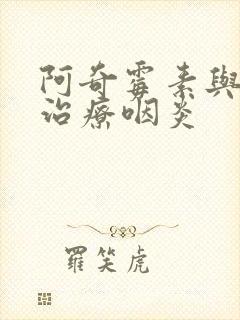 阿奇霉素與
治療咽炎
羅笑虎